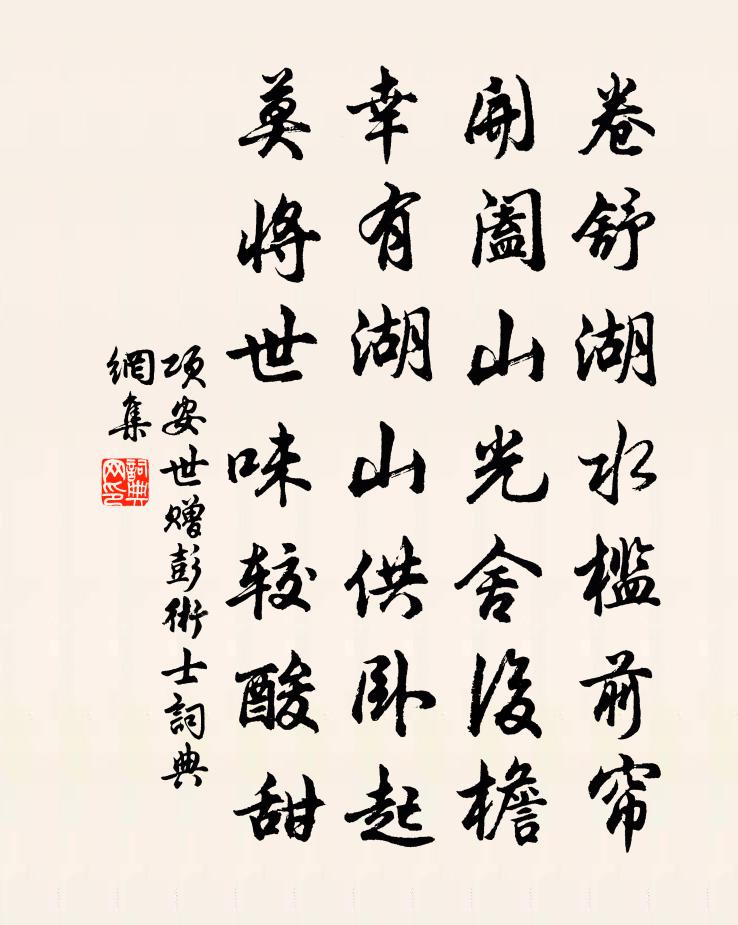 卷舒湖水檻前帘
開闔山光舍後檐
幸有湖山供卧起
莫將世味較酸甜
項安世赠彭術士詞典
網集
詞典网印